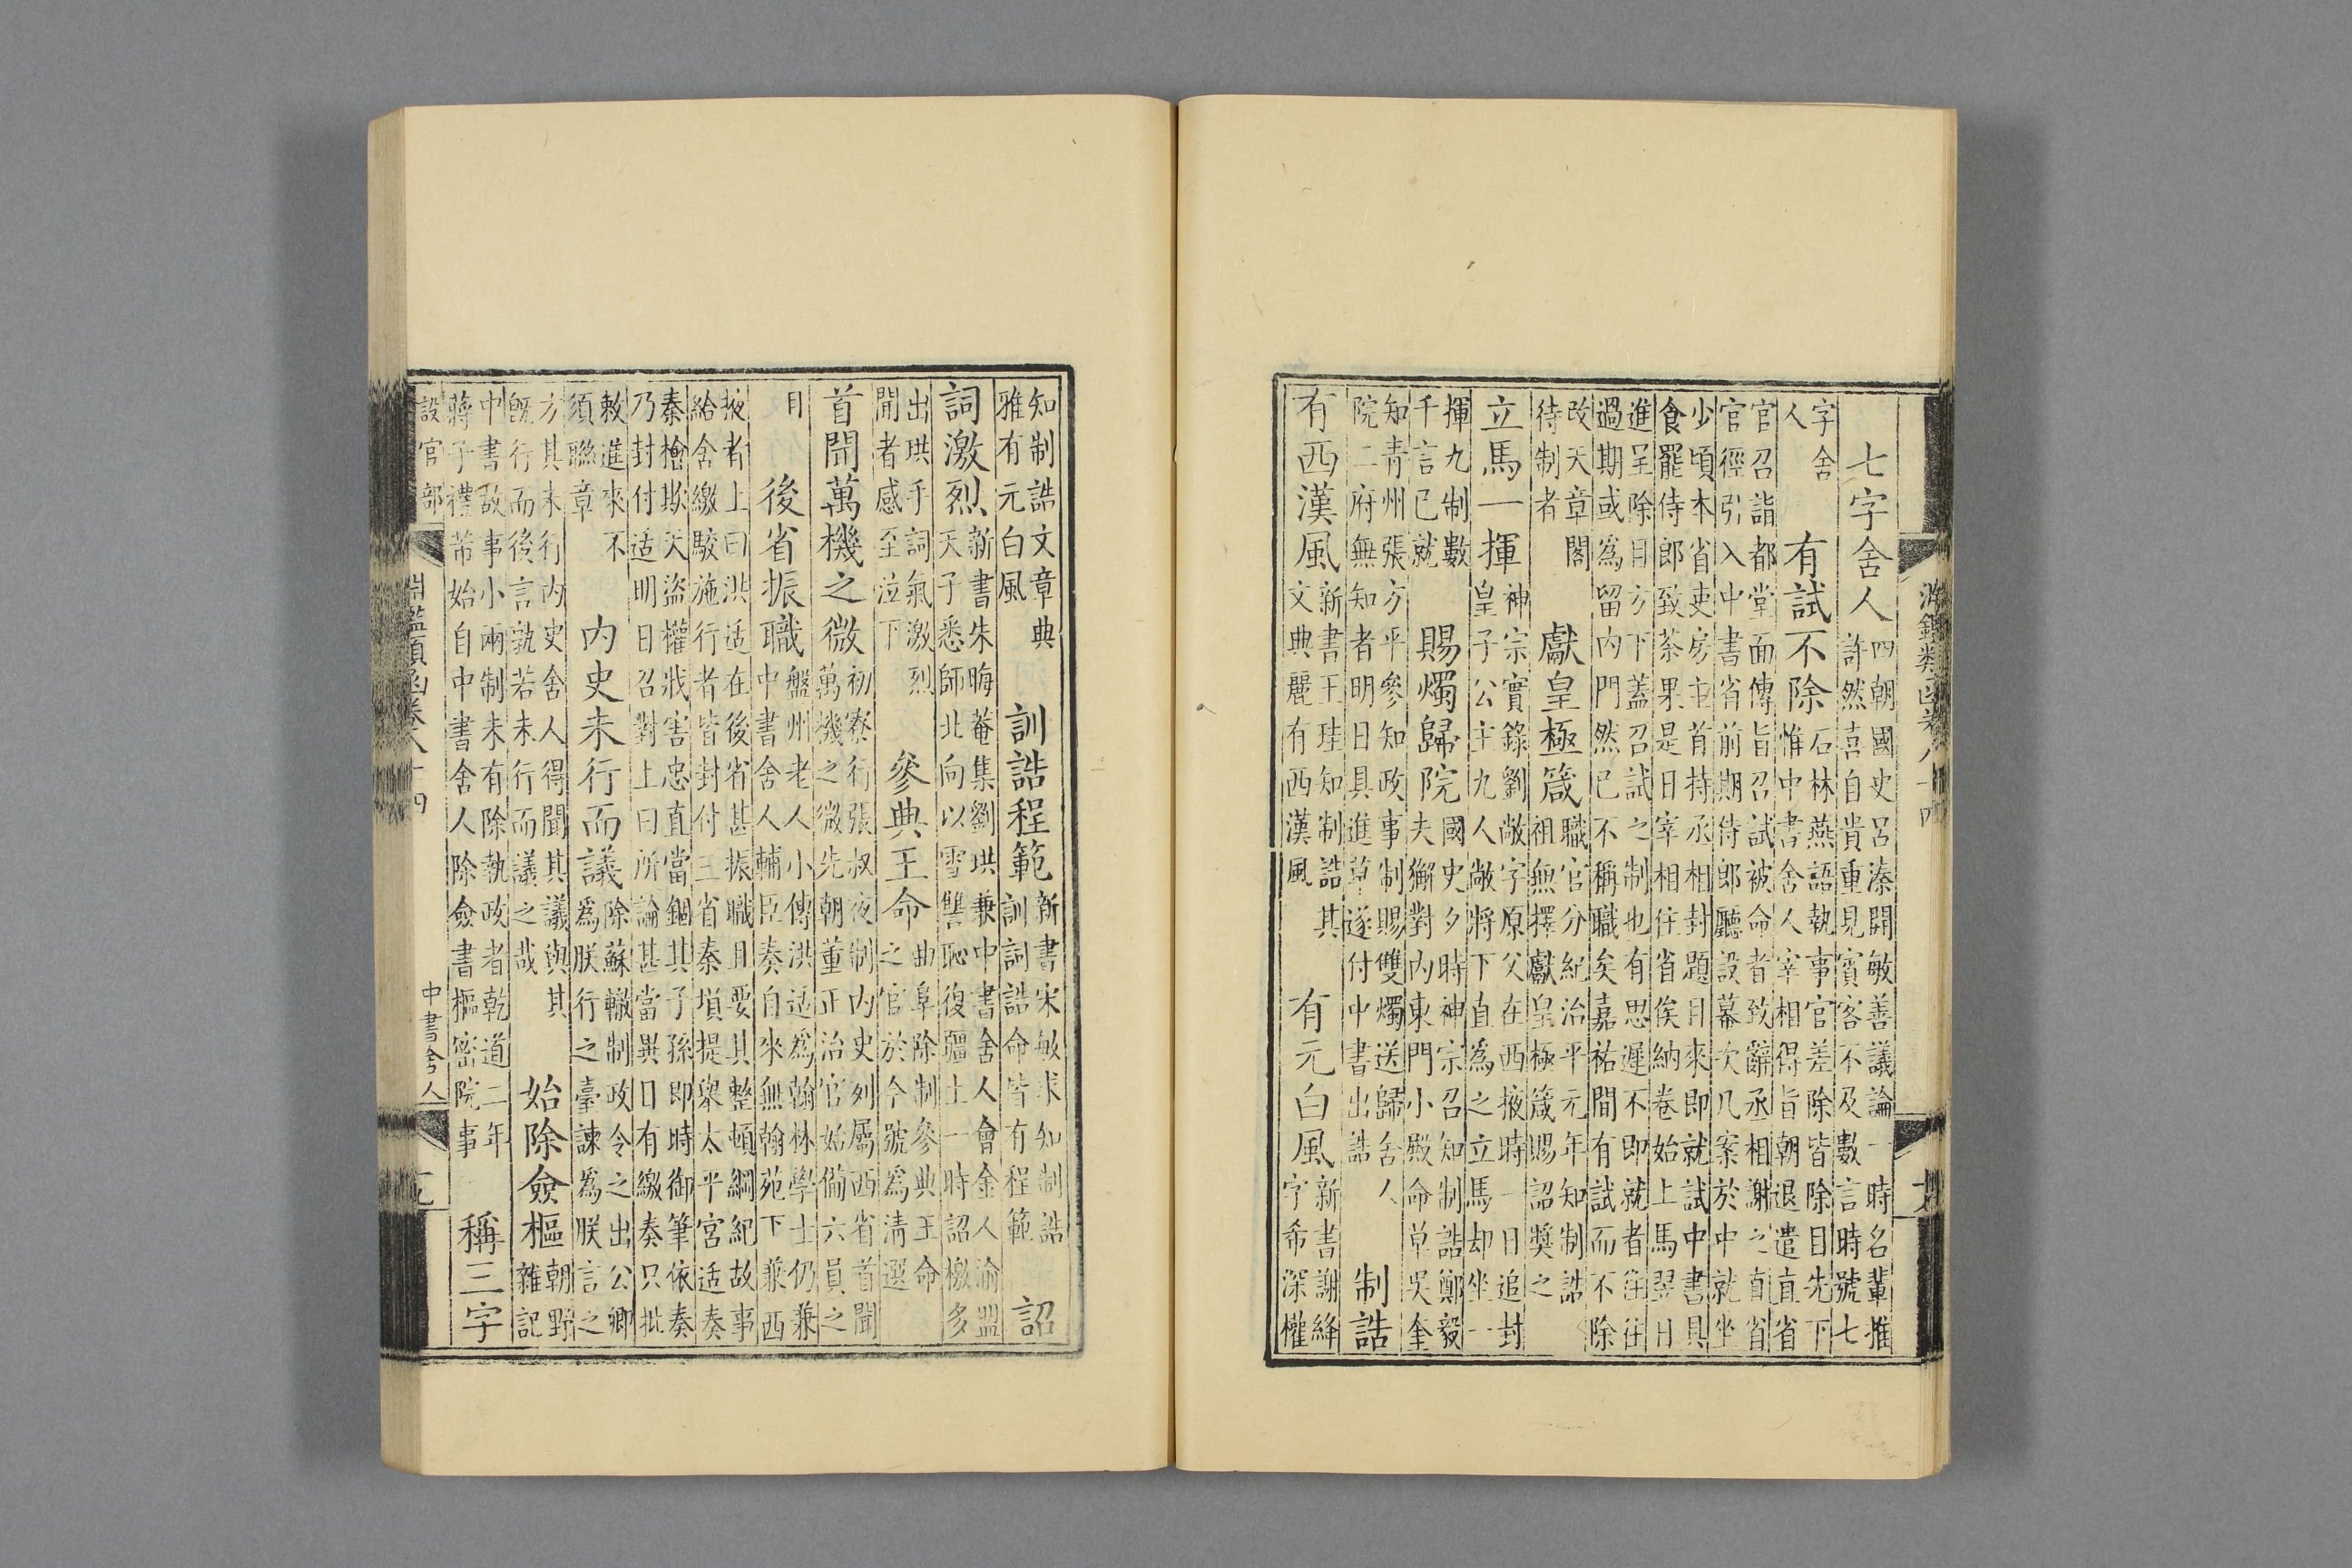 七字舍人
四朝國史呂溱開敏善議論一時名輩推
許然喜自貴重見賓客不及數言時號七
字舍
人
有試不除
石林燕語執事官差除皆除目先下
惟中書舍人宰相得旨朝退遣直省
官召詣都堂面傳旨召試被命者致辭丞相謝之直省
官徑引入中書省前期侍郎廳設幕次几案於中就坐
少頃本省吏房主首持丞相封題目來即就試中書具
食罷侍郎致茶果是日宰相住省俟納卷始上馬翌日
進呈除目方下蓋召試之制也有思遲不即就者往往
過期或為留内門然已不稱職矣嘉祐間有試而不除
改天章閣
待制者
獻皇極箴
職官分紀治平元年知制誥
祖無擇獻皇極箴賜詔獎之
立馬一揮
神宗實錄劉敞字原父在西掖時一日追封
皇子公主九人敞將下直為之立馬却坐一
揮九制數
千言已就
賜燭歸院
國史夕時神宗召知制誥鄭毅
夫獬對内東門小殿命草吳奎
知青州張方平參知政事制賜雙燭送歸舍人
院二府無知者明日具進草遂付中書出誥
制誥
有西漢風
新書王珪知制誥其
文典麗有西漢風
有元白風
新書謝絳
字希深權
知制誥文章典
雅有元白風
訓誥程範
新書宋敏求知制誥
訓詞誥命皆有程範
詔
詞激烈
新書朱晦菴集劉珙兼中書舍人會金人渝盟
天子悉師北向以雪讐恥復疆土一時詔檄多
出珙手詞氣激烈
聞者感至泣下
參典王命
曲阜除制參典王命
之官於今號為清選
首聞萬機之微
初寮行張叔夜制内史列屬西省首聞
萬機之微先朝董正治官始備六員之
目
後省振職
盤州老人小傳洪适為翰林學士仍兼
中書舍人輔臣奏自來無翰苑下兼西
掖者上曰洪适在後省甚振職且要其整頓綱紀故事
給舍繳駮施行者皆封付三省秦塤提舉太平宮适奏
秦檜欺天盜權戕害忠直當錮其子孫即時御筆依奏
乃封付适明日召對上曰所論甚當異日有繳奏只批
敕進來不
須聯章
内史未行而議
除蘇轍制政令之出公卿
為朕行之臺諫為朕言之
方其未行内史舍人得聞其議與其
既行而後言孰若未行而議之哉
始除僉樞
朝野
雜記
中書故事小兩制未有除執政者乾道二年
蔣子禮芾始自中書舍人除僉書樞密院事
稱三字
設官部
淵鑑類函卷八十四
中書舍人